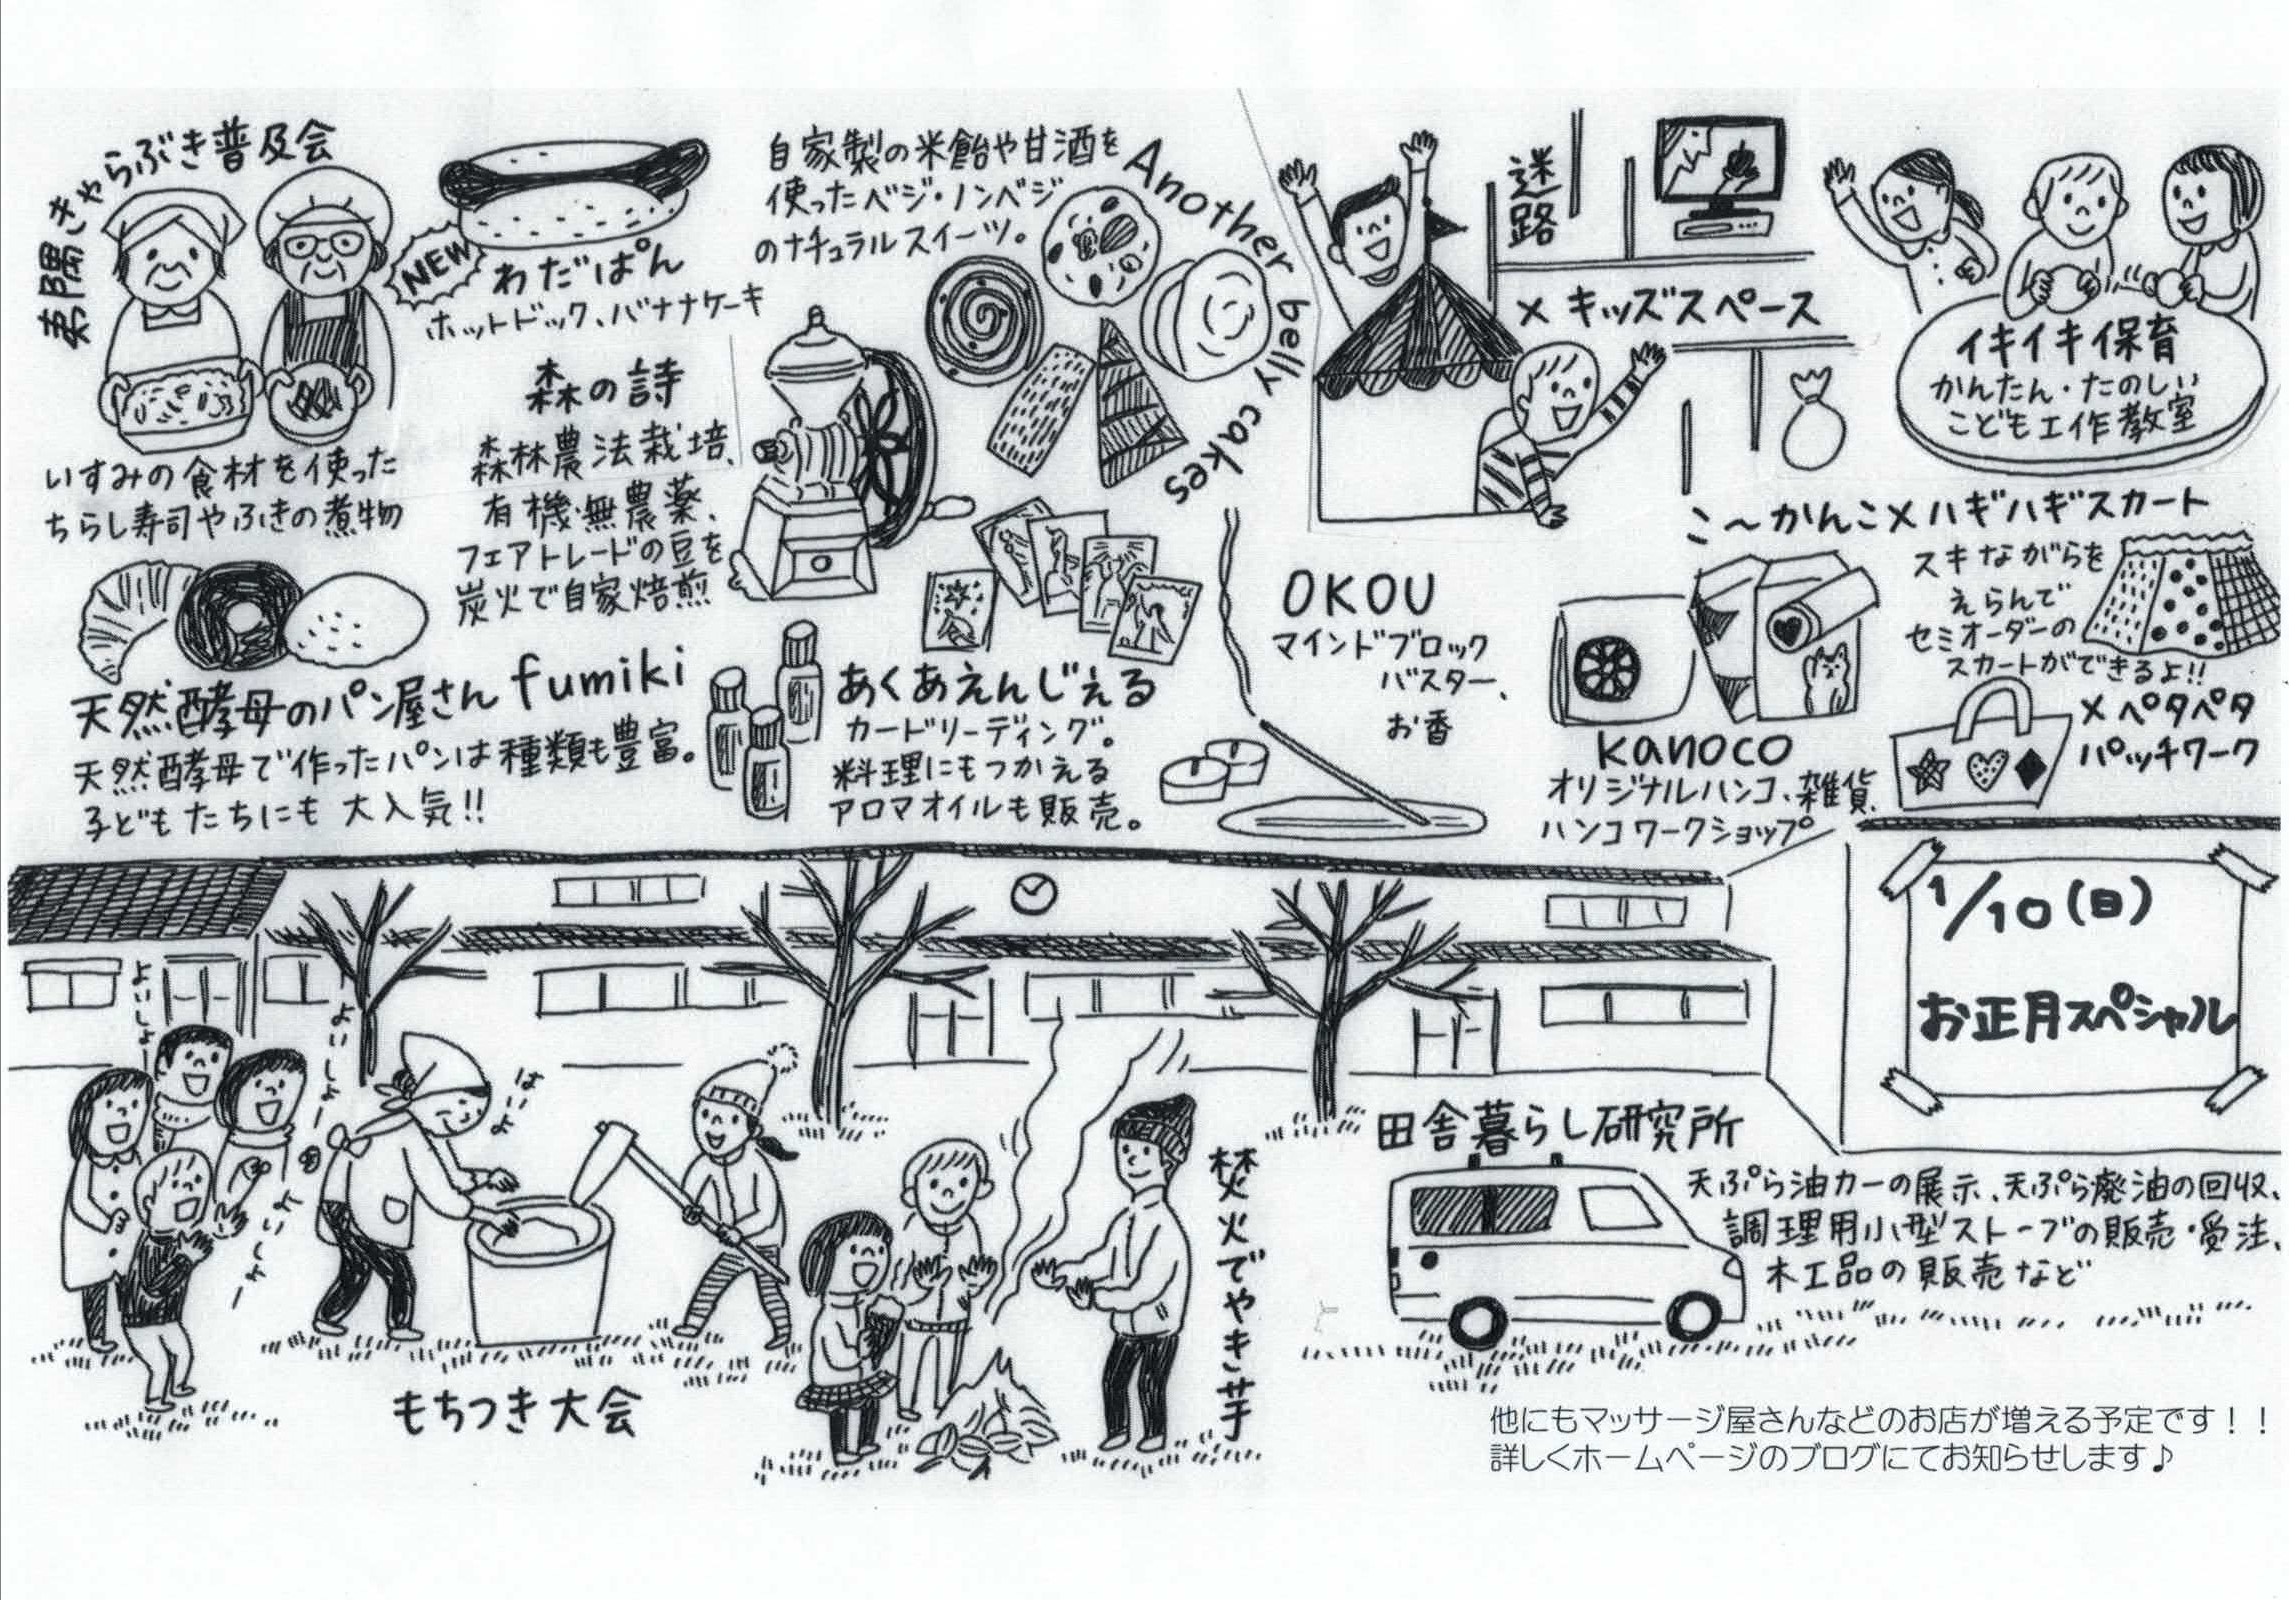 夷隅きゃらぶき普及会
いすみの食材を使った
ちらし寿司やふきの煮物
NEW
わだぱん
ホットドック、バナナケーキ
自家製の米飴や甘酒を
使ったベジ・ノンベジ
のナチュラルスイーツ。
Another belly cakes
森の詩
森林農法栽培、
有機・無農薬、
フェアトレードの豆を
炭火で自家焙煎
天然酵母のパン屋さん fumiki
天然酵母で作ったパンは種類も豊富。
子どもたちにも大人気!!
あくあえんじぇる
カードリーディング。
料理にもつかえる
アロマオイルも販売。
OKOU
マインドブロック
バスター、
お香
迷路
×キッズスペース
イキイキ保育
かんたん・たのしい
こども工作教室
こ〜かんこ×ハギハギスカート
スキながらを
えらんで
セミオーダーの
スカートができるよ!!
×ペタペタ
パッチワーク
kanoco
オリジナルハンコ、雑貨、
ハンコワークショップ
1/10(日)
お正月スペシャル
よいしょー
よいしょー
よいしょー
はーいよ
もちつき大会
焚火でやき芋
田舎暮らし研究所
天ぷら油カーの展示、天ぷら廃油の回収、
調理用小型ストーブの販売・受注、
木工品の販売など
他にもマッサージ屋さんなどのお店が増える予定です！！
詳しくホームページのブログにてお知らせします♪